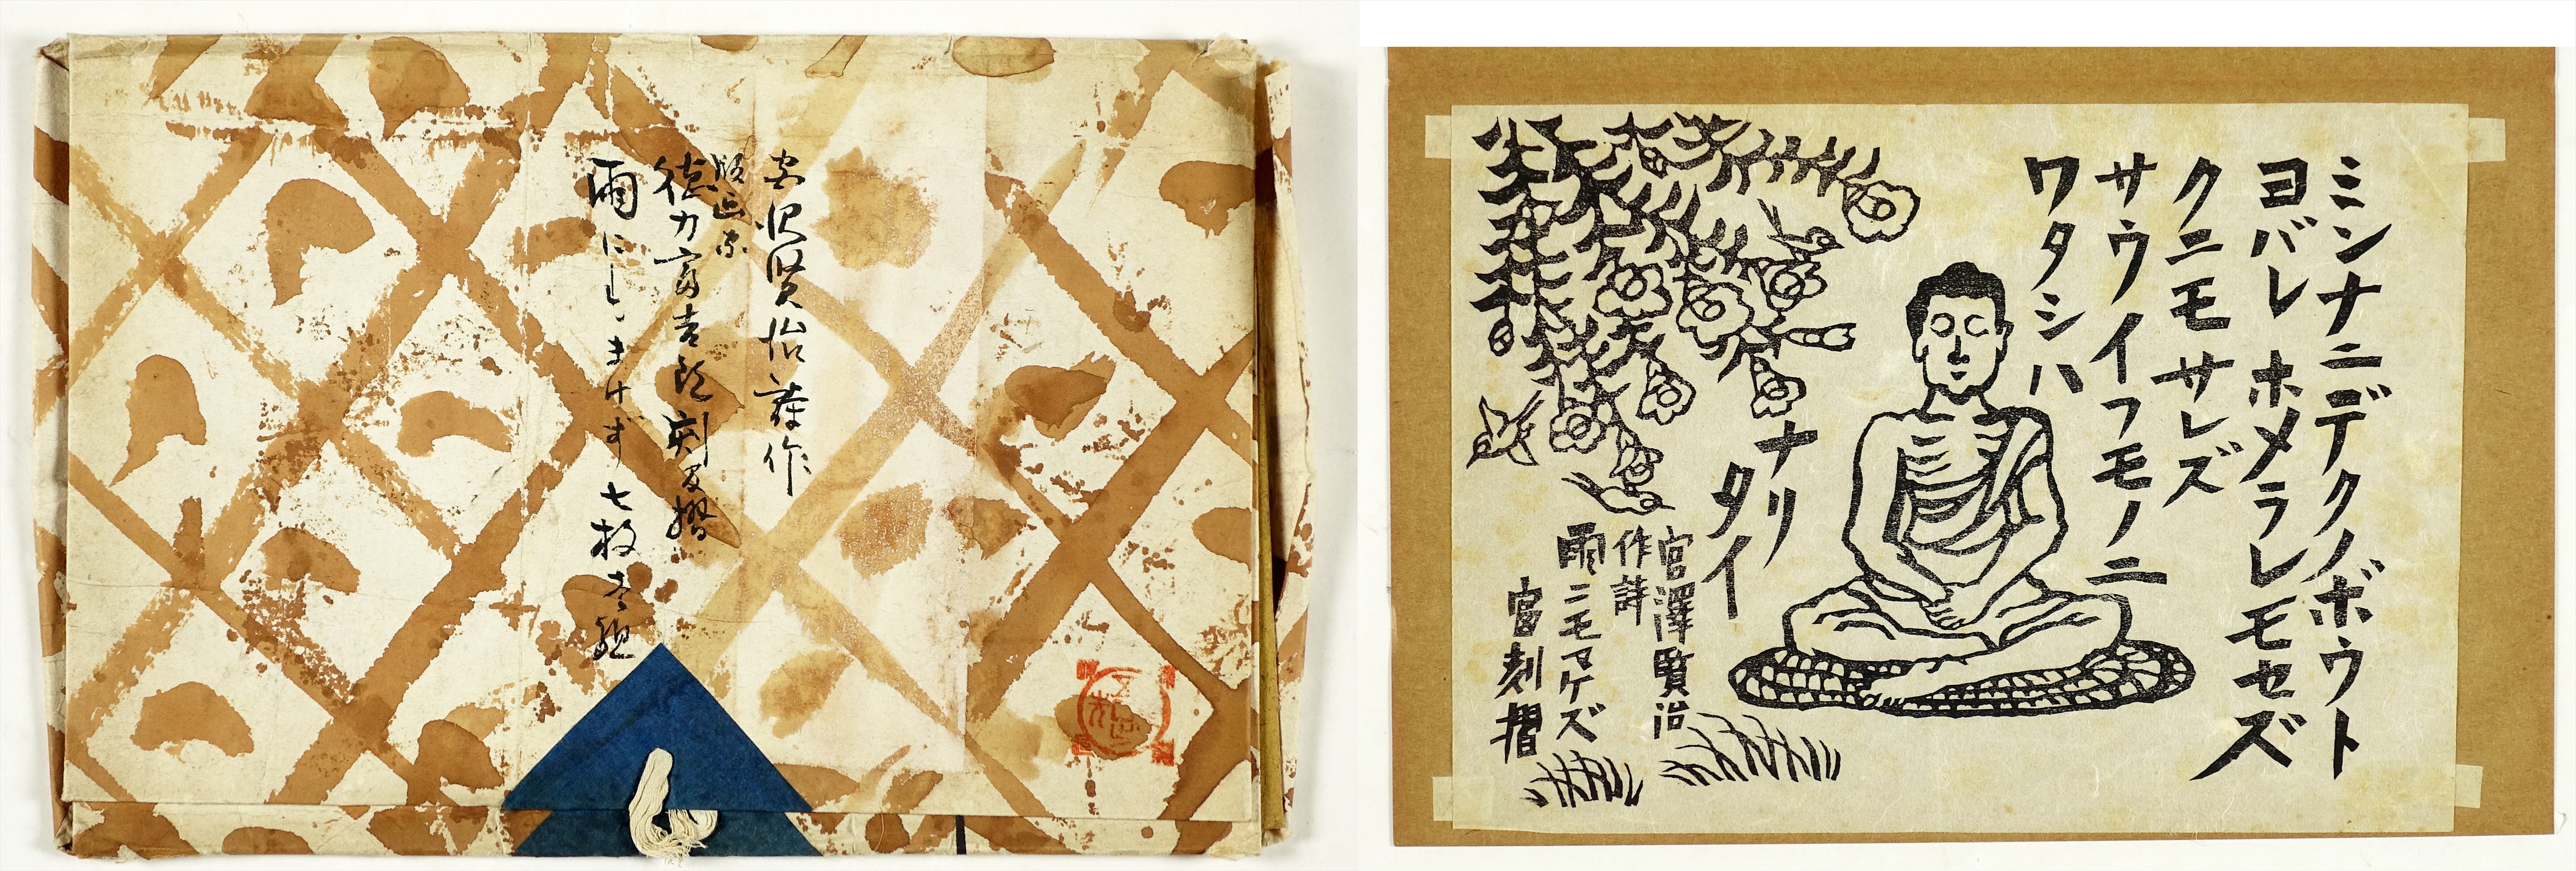 宮沢賢治詩作
版画家
徳力富吉郎刻及摺
雨にもまけず 七枚壱組
ミンナニデクノボウト
ヨバレ ホメラレモセズ
クニモサレズ
サウイフモノニ
ワタシハ
ナリ
タイ
宮澤賢治
作詩
雨ニモマケズ
富刻摺